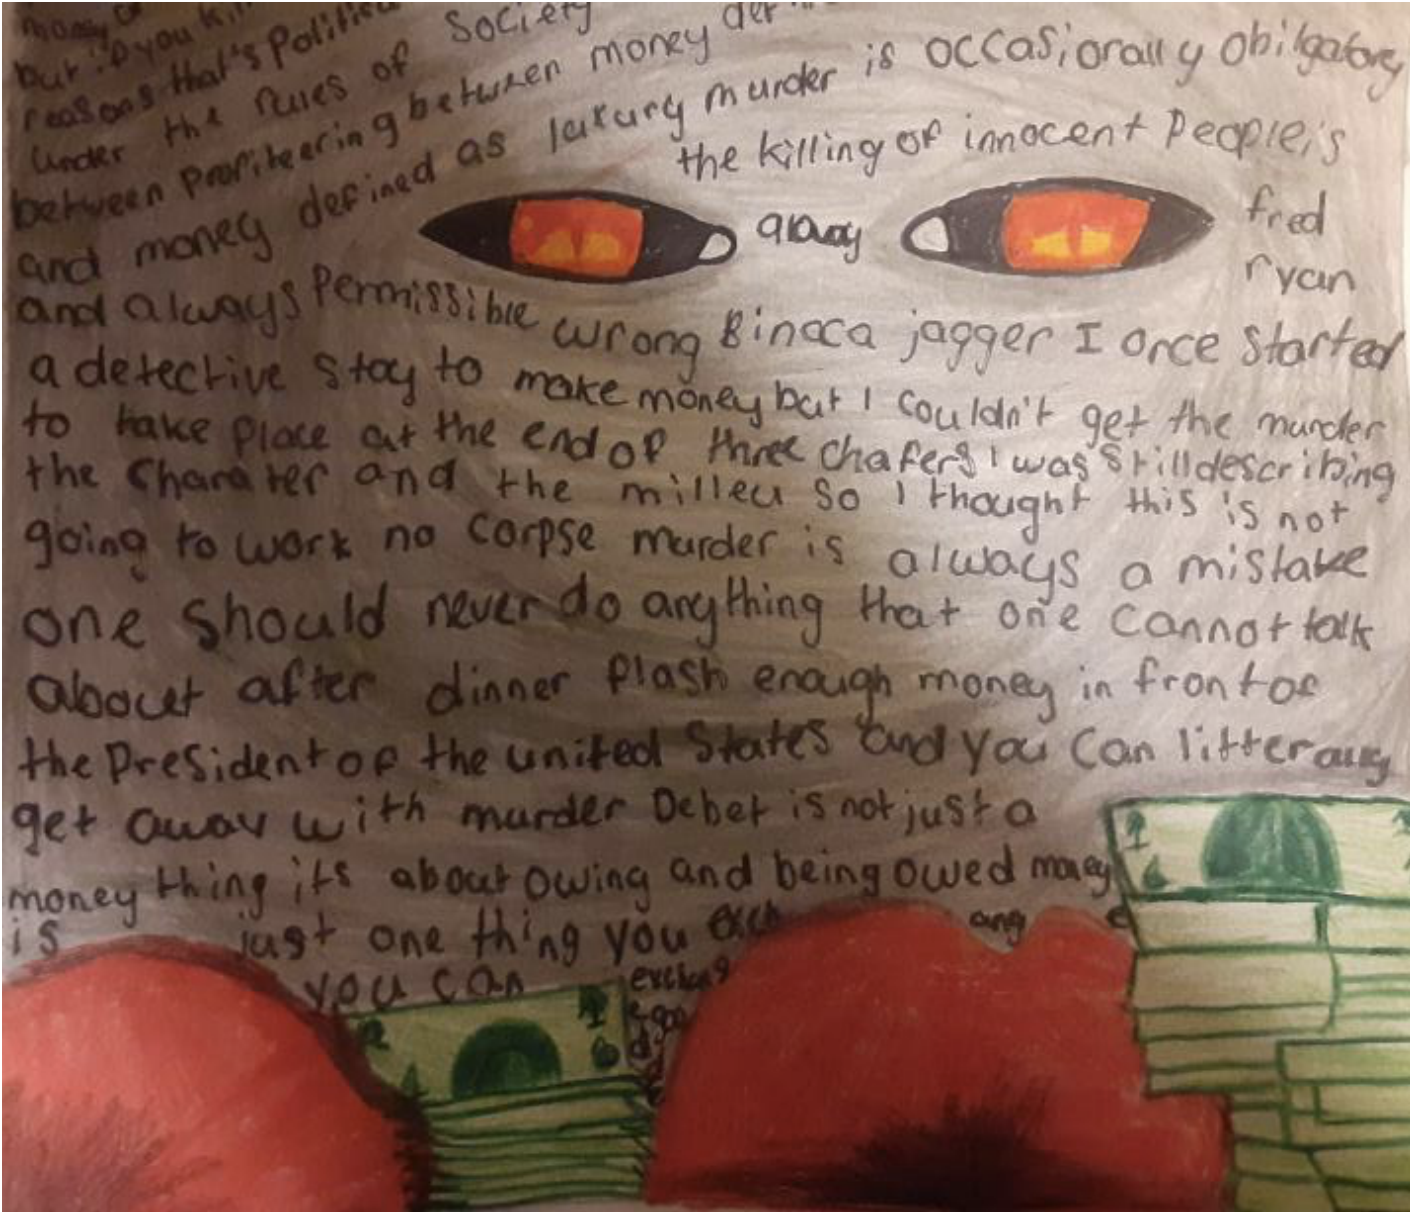 but if you kill
reasons that's Politic
under the rules of Society
between Profiteering between money def
and money defined as luxury murder is occasiorally obilgatory
the killing of innocent People is
always fred
ryan
and always Permissible wrong Binaca jagger I once started
a detective stoy to make money but I couldn't get the murder
to take place at the end of three chafers I was still describing
the charater and the milleu so I thought this is not
going to work no corpse murder is always a mistake
one should never do anything that one cannot talk
about after dinner flash enough money in front of
the President of the united States and you can litterally
get away with murder Debet is not just a
money thing its about owing and being owed money
is just one thing you exch ang e
you can exchang
e goo
d